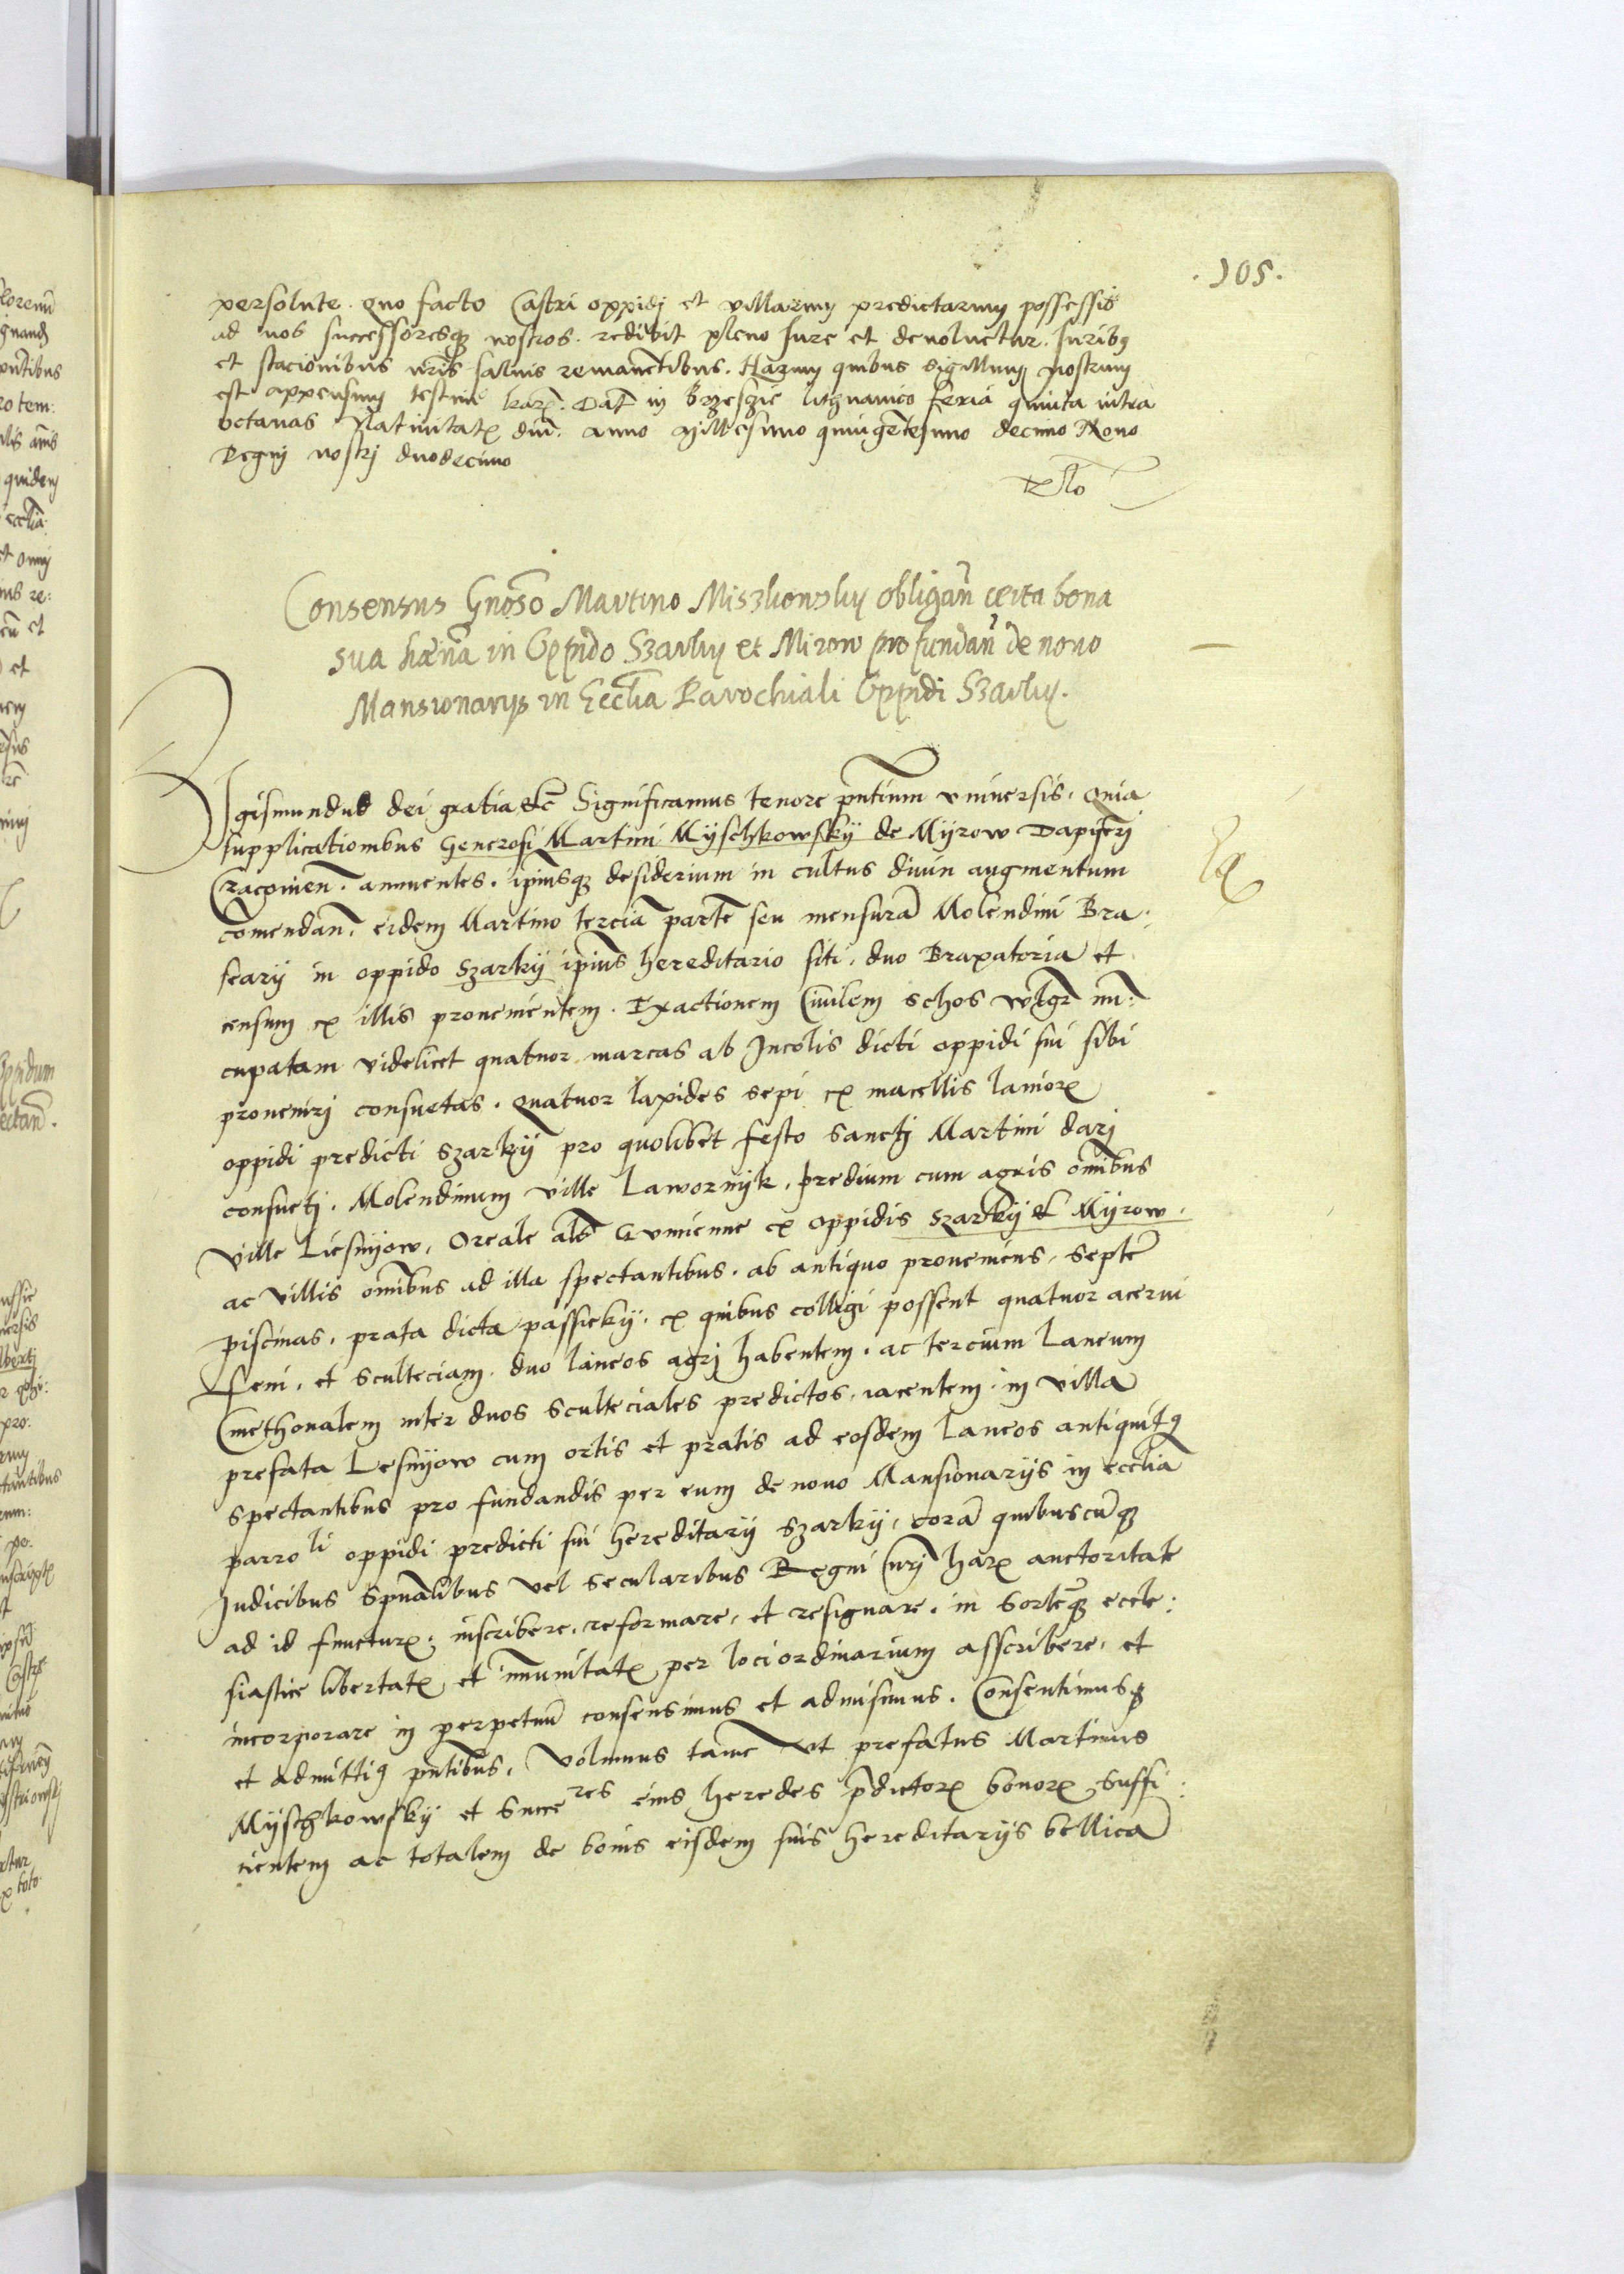 .105.
persolute. quo facto Castri oppidj et villarum predictarum possessio
ad nos successoresq3 nostros. redibit pleno Iure et devoluetur. Iurib9
et stacionibus nr̃is salvis remanẽtibus. Harum quibus sigillum nostrum
est appensum testim har̃. Dat̃ in Brzeszie lithuanico feria quinta intra
octavas Nativitat̃ dñi. anno Millesimo quingẽtesimo decimo Nono
Regni nostrj duodecimo
Consensus Gnõso Martino Miszkowsky obligañ certa bona
sua hæna in Oppido Szarky et Mirow pro fundañ de novo
Mansionarÿs in Eccl̃ia Parochiali Oppidi Szarky.
Sigismundus dei gratia &c̃ Significamus tenore pñtium vniversis. Quia
supplicationibus Generosi Martini Mÿschkowskÿ de Mÿrow Dapiferj
Cracovieñ. annuentes. ipiusq3 desiderium in cultus divin augmentum
com̃endañ. eidem Martino terciã partẽ seu mensurã Molendini Bra:
searÿ in oppido Szarkÿ ipĩus hereditario siti, duo Braxatoria et
censum ex illis provenientem. Exactionem Civilem schos wlgr̃ nũ:
cupatam videlicet quatuor marcas ab Incolis dicti oppidi sui sibi
provenirj consuetas. quatuor lapides sepi ex macellis lanior̃
oppidi predicti Szarkÿ pro quolibet festo Sanctj Martini darj
consuetj. Molendinum ville Lawornÿk. predium cum agris om̃ibus
ville Liesnÿow, Oreale al̃s Gvmienne ex oppidis Szarkÿ & Mÿrow.
ac villis om̃ibus ad illa spectantibus. ab antiquo proveniens, septẽ
piscinas, prata dicta passiekÿ. ex quibus colligi possent quatuor acervi
feni, et Scultetiam. duo laneos agrj habentem. ac tercium Laneum
Cmethonalem inter duos Sculteciales predictos. iacentem. in villa
prefata Lesnÿow cum ortis et pratis ad eosdem Laneos antiquit9
spectantibus pro fundandis per eum de novo Mansionarÿs in eccl̃ia
parro li oppidi predicti sui hereditarÿ Szarkÿ, corã quibuscũq3
Iudicibus Spũalibus vel Secularibus Regni nr̃j har̃ auctoritate
ad id functur̃. inscribere. reformare, et resignare. in Sortẽq3 eccle:
siastice libertat̃ et im̃unitat̃ per loci ordinarium asscribere, et
incorporare in perpetuũ consensimus et admisimus. Consentimusq3
et admittim9 pñtibus. Volumus tamẽ vt prefatus Martinus
Mÿschkowskÿ et Succe res eius heredes p̃dictor̃ bonor̃ Suffi:
cientem ac totalem de bonis eisdem suis hereditarÿs bellicã